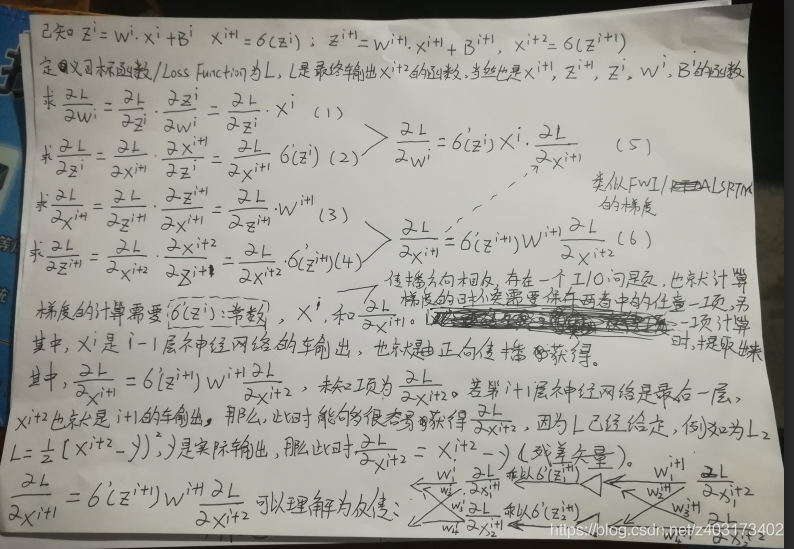 已知 Zⁱ=Wⁱ·Xⁱ+Bⁱ Xⁱ⁺¹=б(Zⁱ); Zⁱ⁺¹=Wⁱ⁺¹·Xⁱ⁺¹+Bⁱ⁺¹, Xⁱ⁺²=б(Zⁱ⁺¹)
定义目标函数/Loss Function为L, L是最终输出Xⁱ⁺²的函数,当然也是Xⁱ⁺¹, Zⁱ⁺¹, Zⁱ, Wⁱ, Bⁱ的函数
求 ∂L/∂Wⁱ = ∂L/∂Zⁱ · ∂Zⁱ/∂Wⁱ = ∂L/∂Zⁱ · Xⁱ (1)
求 ∂L/∂Zⁱ = ∂L/∂Xⁱ⁺¹ · ∂Xⁱ⁺¹/∂Zⁱ = ∂L/∂Xⁱ⁺¹ б'(Zⁱ) (2)
∂L/∂Wⁱ = б'(Zⁱ) Xⁱ · ∂L/∂Xⁱ⁺¹ (5)
类似FWI/ALSRTM
的梯度
求 ∂L/∂Xⁱ⁺¹ = ∂L/∂Zⁱ⁺¹ · ∂Zⁱ⁺¹/∂Xⁱ⁺¹ = ∂L/∂Zⁱ⁺¹ · Wⁱ⁺¹ (3)
求 ∂L/∂Zⁱ⁺¹ = ∂L/∂Xⁱ⁺² · ∂Xⁱ⁺²/∂Zⁱ⁺¹ = ∂L/∂Xⁱ⁺² · б'(Zⁱ⁺¹) (4)
∂L/∂Xⁱ⁺¹ = б'(Zⁱ⁺¹) Wⁱ⁺¹ ∂L/∂Xⁱ⁺² (6)
传播方向相反,存在一个I/O问题,也就计算
梯度的时候需要保存两者中的任意一项,另
一项计算
时,提取出来
梯度的计算需要 б'(Zⁱ):常数, Xⁱ, 和 ∂L/∂Xⁱ⁺¹。
其中, Xⁱ是i-1层神经网络的输出, 也就是由正向传播获得。
其中, ∂L/∂Xⁱ⁺¹ = б'(Zⁱ⁺¹) Wⁱ⁺¹ ∂L/∂Xⁱ⁺², 未知项为 ∂L/∂Xⁱ⁺²。若第i+1层神经网络是最后一层,
Xⁱ⁺²也就是i+1的输出。那么,此时能够很容易获得 ∂L/∂Xⁱ⁺², 因为L已经给定, 例如为L₂
L=½(Xⁱ⁺²-y)², y是实际输出, 那么此时 ∂L/∂Xⁱ⁺² = Xⁱ⁺²-y (残差矢量)。
∂L/∂Xⁱ⁺¹ = б'(Zⁱ⁺¹) Wⁱ⁺¹ ∂L/∂Xⁱ⁺² 可以理解为反传:
∂L/∂X₁ⁱ⁺¹ 乘以б'(Z₁ⁱ⁺¹) W₁ⁱ⁺¹ W₂ⁱ⁺¹ ∂L/∂X₁ⁱ⁺²
∂L/∂X₂ⁱ⁺¹ 乘以б'(Z₂ⁱ⁺¹) W₃ⁱ⁺¹
https://blog.csdn.net/z403173402